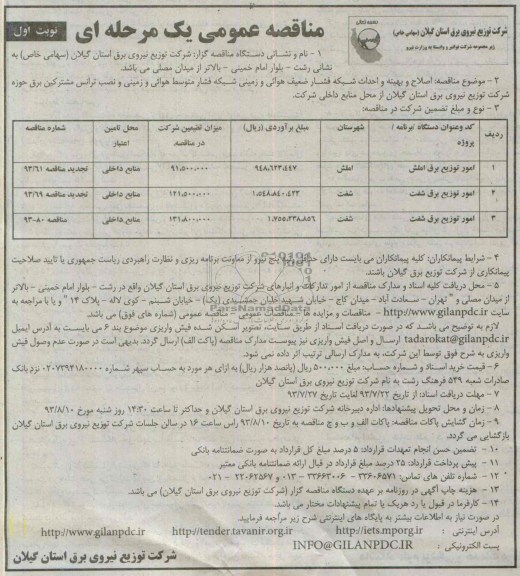 شرکت توزیع نیروی برق استان گیلان (سهامی خاص)
مناقصه عمومی یک مرحله ای
نوبت اول
۱ - نام و نشانی دستگاه مناقصه گزار: شرکت توزیع نیروی برق استان گیلان (سهامی خاص) به
نشانی رشت - بلوار امام خمینی - بالاتر از میدان مصلی می باشد.
۲ - موضوع مناقصه: اصلاح و بهینه و احداث شبکه فشار ضعیف هوائی و زمینی شبکه فشار متوسط هوائی و زمینی و نصب ترانس مشترکین برق حوزه
شرکت توزیع نیروی برق استان گیلان از محل منابع داخلی شرکت.
۳ - نوع و مبلغ تضمین شرکت در مناقصه:
ردیف کد وعنوان دستگاه /برنامه / پروژه شهرستان مبلغ برآوردی (ریال) میزان تضمین شرکت در مناقصه محل تامین اعتبار شماره مناقصه
۱ امور توزیع برق املش املش ۹۴۸،۶۲۳،۴۴۷ ۹۱،۵۰۰،۰۰۰ منابع داخلی تجدید مناقصه ۹۳/۶۱
۲ امور توزیع برق شفت شفت ۱،۵۴۸،۸۴۰،۴۲۳ ۱۲۱،۵۰۰،۰۰۰ منابع داخلی تجدید مناقصه ۹۳/۶۹
۳ امور توزیع برق شفت شفت ۱،۷۵۵،۲۳۸،۸۵۶ ۱۳۱،۸۰۰،۰۰۰ منابع داخلی مناقصه ۸۰-۹۳
۴ - شرایط پیمانکاران: کلیه پیمانکاران می بایست دارای حداقل رتبه پنج نیرو از معاونت برنامه ریزی و نظارت راهبردی ریاست جمهوری یا تایید صلاحیت
پیمانکاری از شرکت توزیع برق گیلان باشند.
۵ - محل دریافت کلیه اسناد و مدارک مناقصه از امور تدارکات و انبارهای شرکت توزیع نیروی برق استان گیلان واقع در رشت - بلوار امام خمینی - بالاتر
از میدان مصلی و " تهران - سعادت آباد - میدان کاج - خیابان شهید خلبان جمشیدی (یک) - خیابان شبنم - کوی لاله - پلاک ۱۴ " و یا با مراجعه به
سایت http://www.gilanpdc.ir - مناقصات و مزایده ها - مناقصات عمومی - مناقصه عمومی (شماره های فوق) می باشد.
لازم به توضیح می باشد که در صورت دریافت اسناد از طریق سایت، تصویر اسکن شده فیش واریزی موضوع بند ۶ می بایست به آدرس ایمیل
tadarokat@gilanpdc.ir ارسال و اصل فیش واریزی نیز پیوست مدارک مناقصه (پاکت الف) ارسال گردد. بدیهی است در صورت عدم وصول فیش
واریزی به شرح فوق توسط این شرکت، به مدارک ارسالی ترتیب اثر داده نمی شود.
۶ - قیمت خرید اسناد و شماره حساب: مبلغ ۵۰۰،۰۰۰ ریال (پانصد هزار ریال) به ازای هر مورد به حساب سپهر شماره ۰۲۰۷۳۹۴۱۸۰۰۰۰ نزد بانک
صادرات شعبه ۵۴۹ فرهنگ رشت به نام شرکت توزیع نیروی برق استان گیلان
۷ - مهلت دریافت اسناد: از تاریخ ۹۳/۷/۲۲ لغایت تاریخ ۹۳/۷/۲۷
۸ - زمان و محل تحویل پیشنهادها: اداره دبیرخانه شرکت توزیع نیروی برق استان گیلان و حداکثر تا ساعت ۱۴:۳۰ روز شنبه مورخ ۹۳/۸/۱۰
۹ - زمان گشایش پاکات مناقصه: پاکات الف و ب و ج مناقصه به تاریخ ۹۳/۸/۱۰ راس ساعت ۱۶ در سالن جلسات شرکت توزیع نیروی برق استان گیلان
بازگشایی می گردد.
۱۰ - تضمین حسن انجام تعهدات قرارداد: ۵ درصد مبلغ کل قرارداد به صورت ضمانتنامه بانکی
۱۱ - پیش پرداخت قرارداد: ۲۵ درصد مبلغ قرارداد در قبال ارائه ضمانتنامه بانکی معتبر
۱۲ - شماره تلفن های تماس: ۳۳۶۰۶۵۷۱ - ۳۳۶۶۳۰۰۶ - ۰۱۳ و ۲۲۰۶۲۵۶۷ - ۰۲۱
۱۳ - هزینه چاپ آگهی در روزنامه بر عهده دستگاه مناقصه گزار (شرکت توزیع نیروی برق استان گیلان) می باشد.
۱۴ - کارفرما در قبول یا رد هریک یا تمام پیشنهادات مختار می باشد.
در صورت نیاز به اطلاعات بیشتر به پایگاه های اینترنتی شرح زیر مراجعه فرمایید.
آدرس اینترنتی : http://iets.mporg.ir http://tender.tavanir.org.ir http://www.gilanpdc.ir
پست الکترونیکی : INFO@GILANPDC.IR
شرکت توزیع نیروی برق استان گیلان